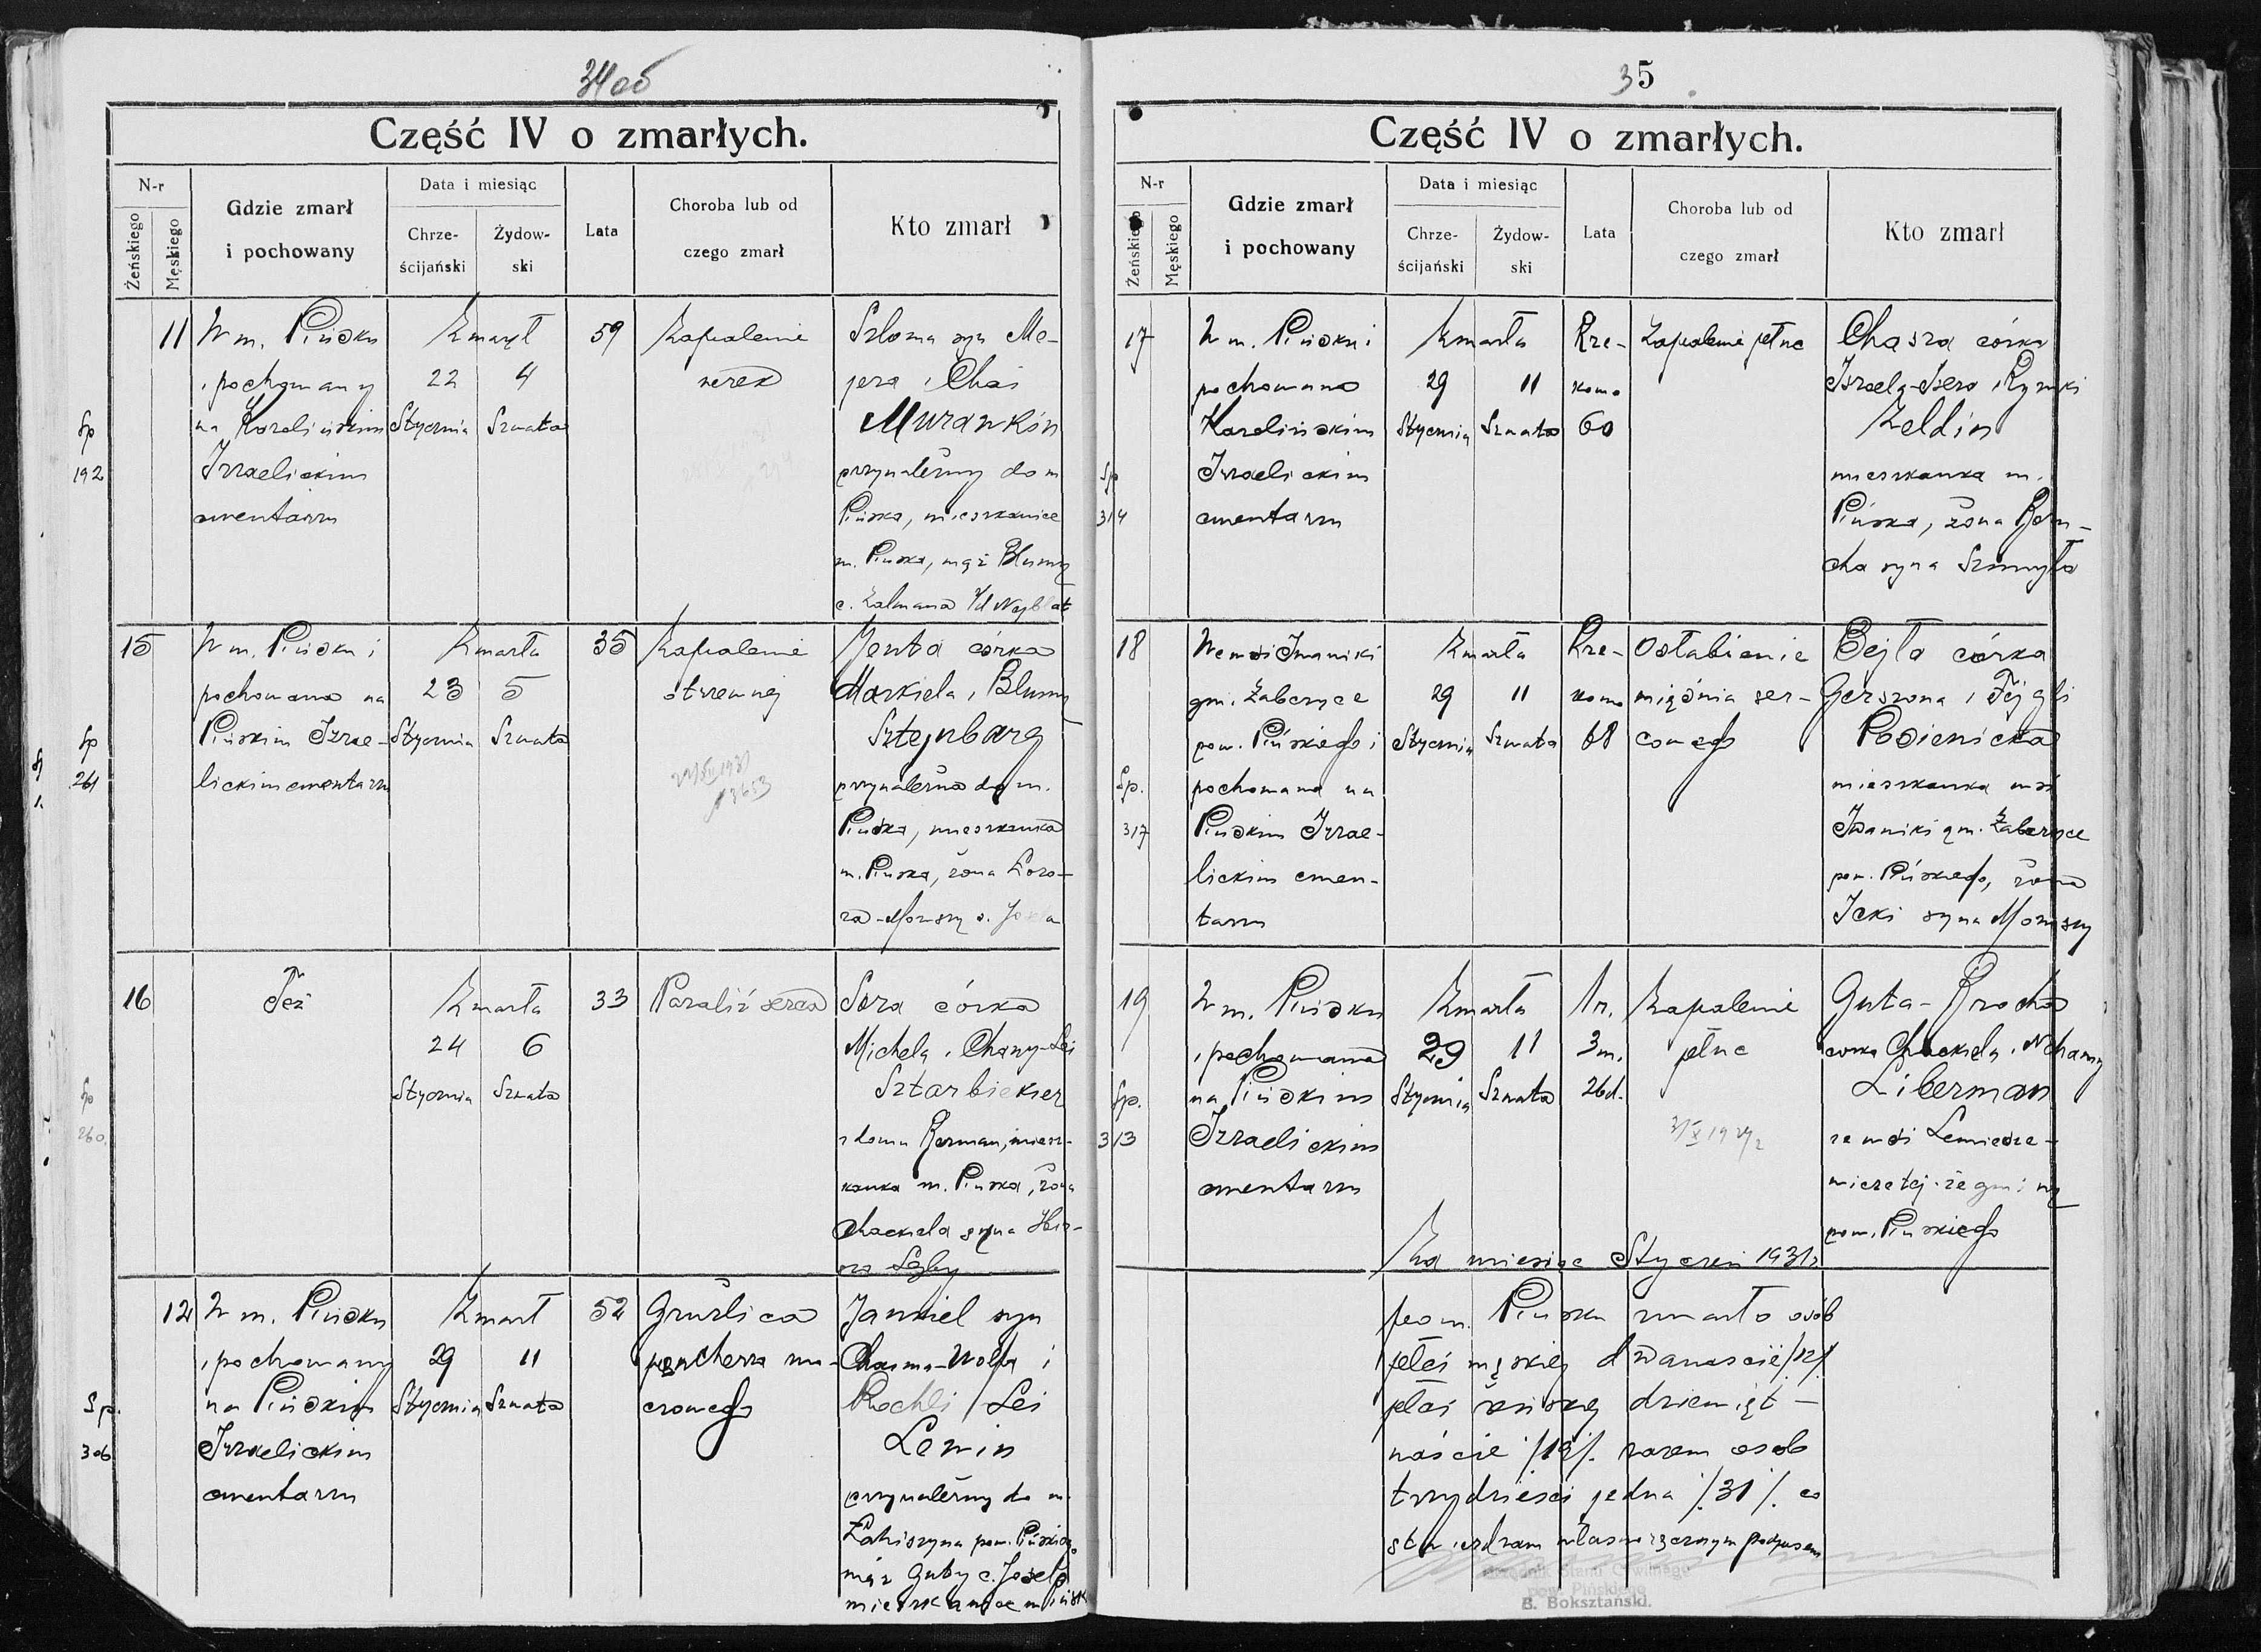 34 об
Część IV o zmarłych.
N-r
Żeńskiego
Męskiego
Gdzie zmarł
i pochowany
Data i miesiąc
Chrze-
ścijański
Żydow-
ski
Lata
Choroba lub od
czego zmarł
Kto zmarł
Sp
192
11
W m. Pińsku
i pochowany
na Karolińskim
Izraelickim
cmentarzu
Zmarł
22 4
Stycznia Szwata
59
Zapalenie
nerek
Szloma syn Me-
jera i Chai
Murawkin
przynależny do m
Pińska, mieszkaniec
m. Pińska, mąż Blumy
c. Zalmana
Sp
261
15
W m. Pińsku i
pochowana na
Pińskim Izrae-
lickim cmentarzu
Zmarła
23 5
Stycznia Szwata
35
Zapalenie
otrzewnej
Jenta córka
Markiela i Blumy
Sztejnbarg
przynależna do m.
Pińska, mieszkanka
m. Pińska, żona Łoro-
za-Mowszy s.
Sp
260.
16
Też
Zmarła
24 6
Stycznia Szwata
33
Paraliż serca
Sora córka
Michela i Chany-Lei
Sztarbiekier
z domu Berman, miesz-
kanka m. Pińska, żona
Chackiela syna Her-
Sp.
306
12
W m. Pińsku
i pochowany
na Pińskim
Izraelickim
cmentarzu
Zmarł
29 11
Stycznia Szwata
52
Gruźlica
pęcherza mo-
czowego
Jankiel syn
Chaima-Wolfa i
Rochli / Lei
Lewin
przynależny do m.
Łohiszyna pow. Pińskiego
mąż Guty c. Josela
mieszkaniec m Pińsk
35
Część IV o zmarłych.
N-r
Żeńskiego
Męskiego
Gdzie zmarł
i pochowany
Data i miesiąc
Chrze-
ścijański
Żydow-
ski
Lata
Choroba lub od
czego zmarł
Kto zmarł
Sp
314
17
W m. Pińsku i
pochowana
Karolińskim
Izraelickim
cmentarzu
Zmarła
29 11
Stycznia Szwata
Rze-
komo
60
Zapalenie płuc
Chasza córka
Israela-Isera i Rywki
Zeldin
mieszkanka m.
Pińska, żona Boru-
cha syna Szmuyła
Sp.
317
18
We wsi Iwaniki
gm. Żabczyce
pow. Pińskiego i
pochowana na
Pińskim Izrae-
lickim cmen-
tarzu
Zmarła
29 11
Stycznia Szwata
Rze-
komo
68
Osłabienie
mięśnia ser-
cowego
Bejla córka
Gerszona i Fejgli
Posienicka
mieszkanka wsi
Iwaniki gm. Żabczyce
pow. Pińskiego, żona
Icki syna Mowszy
Sp.
313
19
W m. Pińsku
i pochowana
na Pińskim
Izraelickim
cmentarzu
Zmarła
29 11
Stycznia Szwata
1 r.
3 m.
26 d.
Zapalenie
płuc
Guta-Brocha
córka Chackiela i Nchamy
Liberman
ze wsi
tejże gminy
pow. Pińskiego
Za miesiąc Styczeń 1931 r
po m. Pińsku zmarło osób
płci męskiej dwanaście /12/
płci żeńskiej dziewięt-
naście /19/. razem osób
trzydzieści jedna /.31/. co
stwierdzam własnoręcznym podpisem
Urzędnik Stanu Cywilnego
pow. Pińskiego
B. Boksztański.